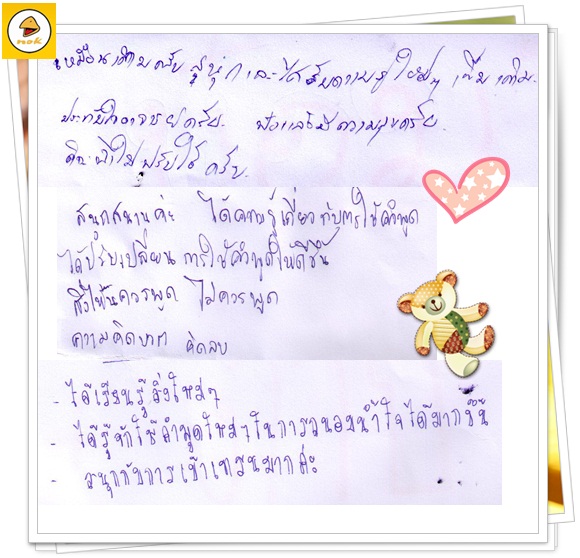 nok
เหมือนเดิมครับ สนุก และได้รับความรู้ใหม่ๆ เพิ่มเติม.
ประทับใจอาจารย์ครับ. ฟังแล้วมีความสุขครับ
สนุกสนานค่ะ ได้ความรู้เกี่ยวกับการใช้คำพูด
ได้ปรับเปลี่ยน การใช้คำพูดให้ดีขึ้น
สิ่งไหนควรพูด ไม่ควรพูด
ความคิดบวก คิดลบ
- ได้เรียนรู้สิ่งใหม่ๆ
- ได้รู้จักใช้คำพูดใหม่ๆในการจนองน้ำใจได้มากขึ้น
- สนุกกับการเข้าเทรนมากค่ะ